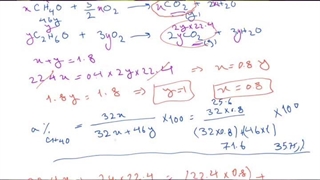 xCH₄O + 3/2 xO₂ → xCO₂ + 2xH₂O
46y
yC₂H₆O + 3yO₂ → 2yCO₂(g) + 3yH₂O
x+y = 1.8
22.4x = 0.4 × 2y × 22.4 ⇒ x = 0.8y
1.8y = 1.8 ⇒ y=1 x = 0.8
a% CH₄O = 32x / (32x + 46y) × 100 = 25.6 32×0.8 / (32×0.8)+(46×1) × 100
71.6 35.75%